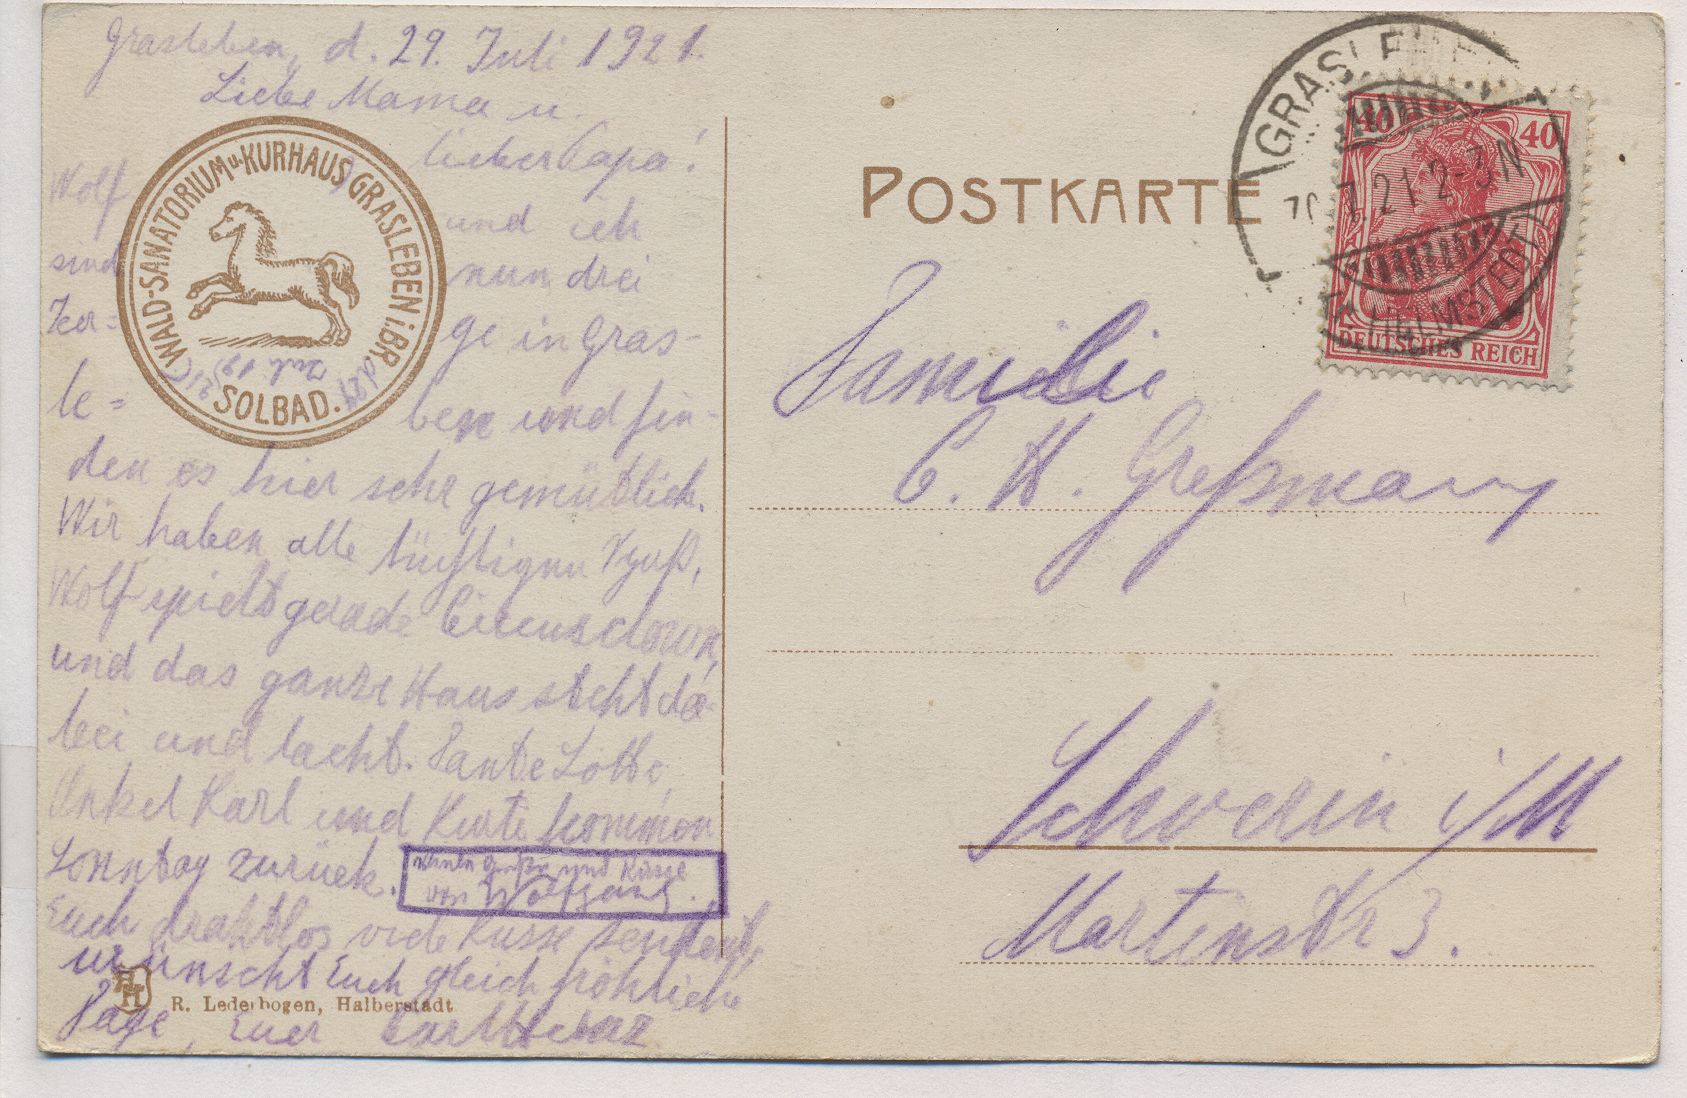 Grasleben, d. 29. Juli 1921.
Liebe Mama u.
lieber Papa!
Wolf und ich
sind nun drei
ge in Gras-
le= ben und fin-
den es hier sehr gemütlich.
Wir haben alle tüchtigen
Wolf spielt gerade Circusclown,
und das ganze Haus steht da-
bei und lacht. Tante Lotte,
Onkel Karl und Kurt kommen
Sonntag zurück.
und Küsse
von Wolfgang.
Euch drahtlos viele Küsse sendend,
wünscht Euch gleich fröhliche
Tage, Euer Carl Heinz
WALD-SANATORIUM u. KURHAUS GRASLEBEN i. BR.
SOLBAD.
R. Lederbogen, Halberstadt
HH
POSTKARTE
GRASLEBEN
7.21 2-3 N
HELMSTEDT
40 40
DEUTSCHES REICH
Familie
C. H. Greßmann
Schwerin i/M
Martinstr 3.